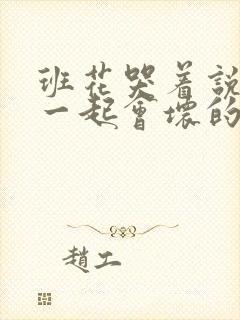 班花哭着說
一起會壞的
趙工